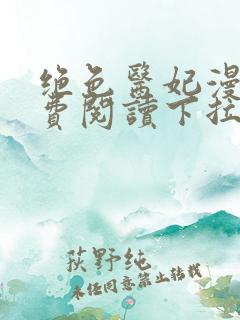 绝色医妃漫
费阅读下拉
荻野纯
未经同意禁止转载